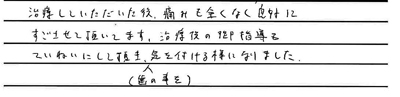 治療していただいた後、痛みも全くなく良好に
すごさせて頂いてます。治療後の指導も
ていねいにして頂き、気を付ける様になりました。
(歯の事を)